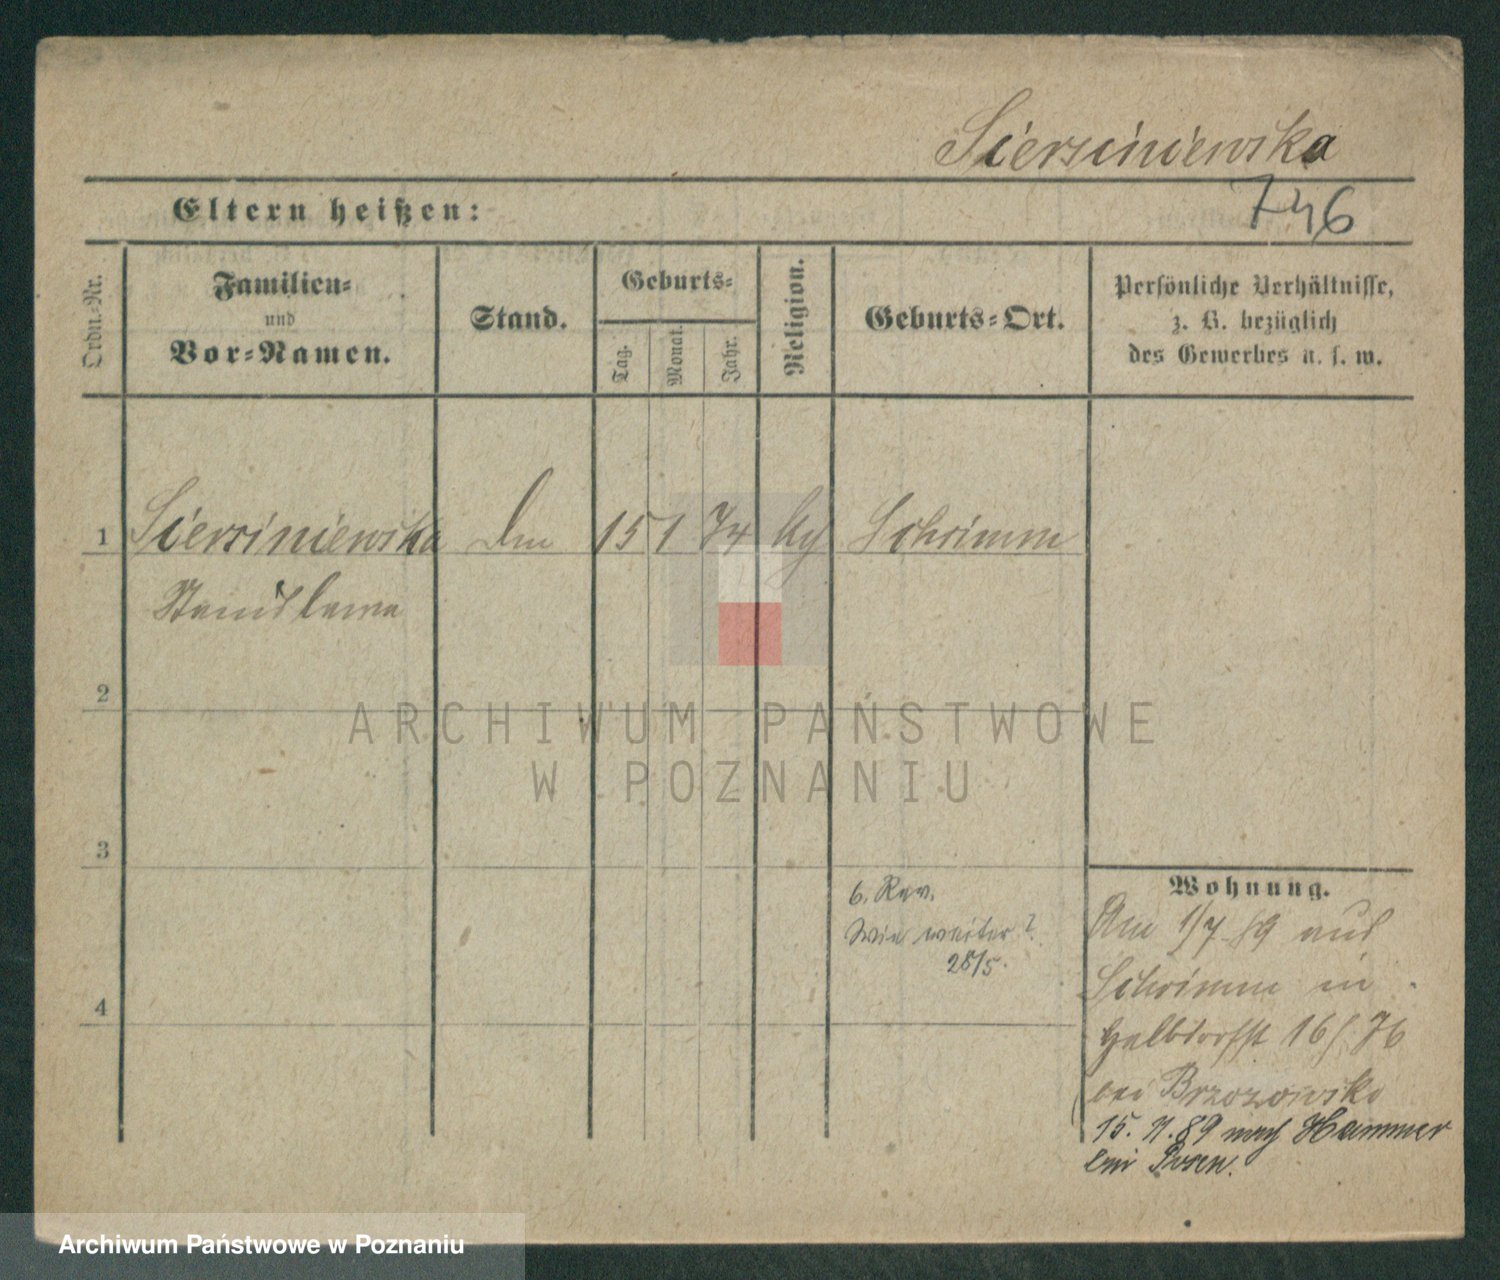 Siersiniewska
746
Eltern heißen:
Ordn.-Nr.
Familien-
und
Vor-Namen.
Stand.
Geburts-
Tag.
Monat.
Jahr.
Religion.
Geburts-Ort.
Persönliche Verhältnisse,
z. B. bezüglich
des Gewerbes u. s. w.
1 Siersiniewska 15 1 74 Schrimm
Stanislawa
2
ARCHIWUM PAŃSTWOWE
W POZNANIU
3
Wohnung.
6. Rev.
Wie weiter?
28/5.
Am 1/7 89 aus
Schrimm in
Halbdorfst 16/76
4
bei Brzozowski
15. 11. 89 nach Hammer
bei Posen.
Archiwum Państwowe w Poznaniu